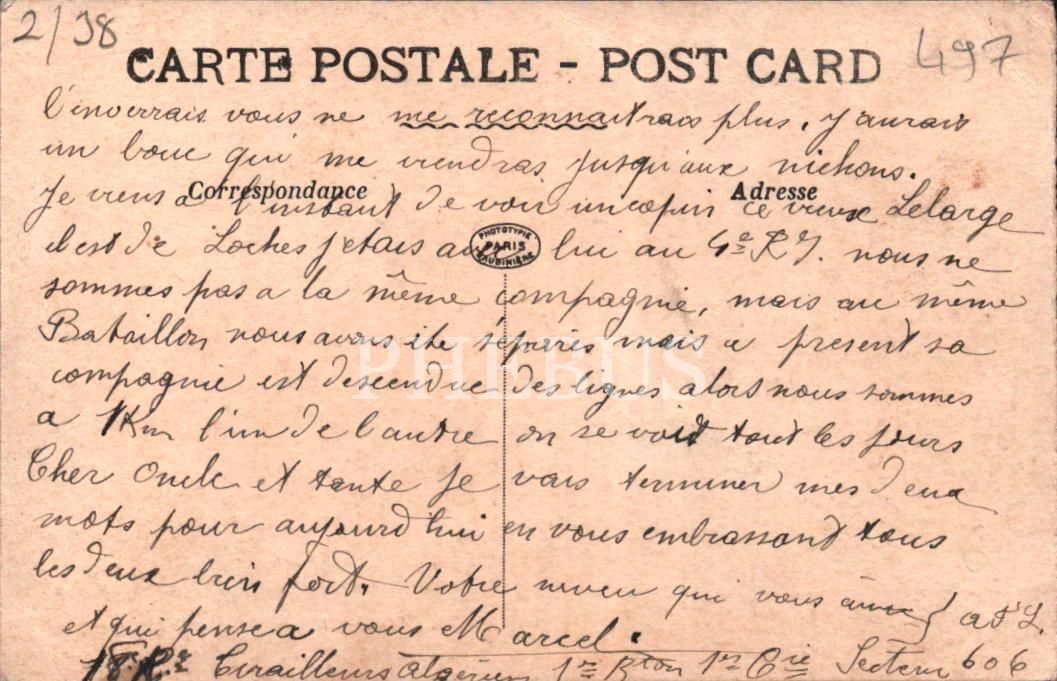 2/38
497
CARTE POSTALE - POST CARD
l'inverrais vous ne me reconnaitrais plus. J'aurais
un bouc qui me viendras jusqu'aux nichons.
Correspondance
Adresse
Je viens a l'instant de voir un copin ce vieux Lelarge
il est de Loches j'etais avec lui au 4e RI. nous ne
PHOTOTYPIE
PARIS
BAUDINIÈRE
sommes pas a la même compagnie, mais au même
Bataillon nous avons ete séparés mais a present sa
PHEBUS
compagnie est descendue des lignes alors nous sommes
a 1Km l'un de l'autre on se voit tout les jours
Cher Oncle et tante je vais terminer mes deux
mots pour aujourd'hui en vous embrassant tous
les deux bien fort. Votre neveu qui vous aime
et qui pense a vous Marcel.
18e Rt Tirailleurs algérien 1er Bton 1re Cie Secteur 606